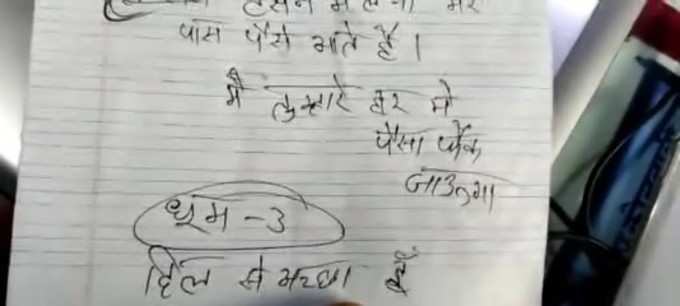 पास पैसे आते हैं।
मै तुम्हारे घर मे
पैसा फेंक
जाउन्गा
धूम - 3
दिल से अच्छा है